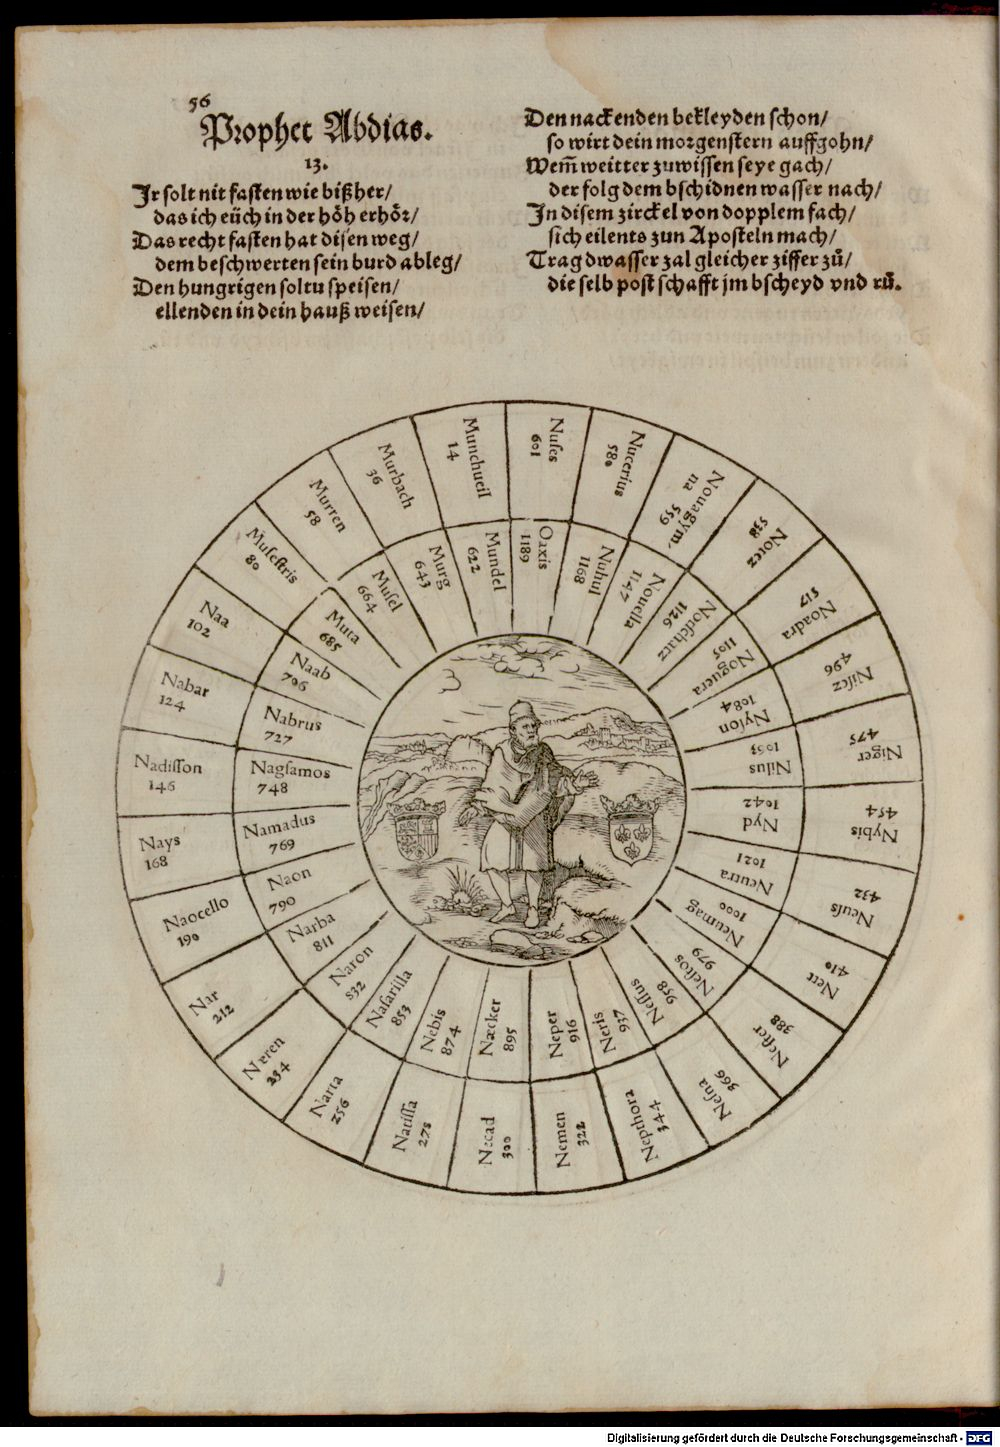 56
Prophet Abdias.
13.
Ir solt nit fasten wie bißher/
das ich eüch in der höh erhör/
Das recht fasten hat disen weg/
dem beschwerten sein burd ableg/
Den hungrigen soltu speisen/
ellenden in dein hauß weisen/
Den nackenden bekleyden schon/
so wirt dein morgenstern auffgohn/
Wem̄ weitter zuwissen seye gach/
der folg dem bschidnen wasser nach/
In disem zirckel von dopplem fach/
sich eilents zun Aposteln mach/
Trag dwasser zal gleicher ziffer zů/
die selb post schafft jm bscheyd vnd rů.
Munchueil
14
Murbach
36
Murten
58
Muſeſtris
80
Naa
102
Nabar
124
Nadiſſon
146
Nays
168
Naocello
190
Nar
212
Næren
234
Narta
256
Natiſſa
278
Necad
300
Nemen
322
Nepthora
344
Neſna
366
Neſter
388
Nett
410
Neuſs
432
Nybis
454
Niger
475
Niſcz
496
Noadra
517
Notcz
538
Nouagym,
na
559
Nucerius
580
Nuſes
601
Mundel
622
Murg
643
Muſel
664
Muta
685
Naab
706
Nabrus
727
Nagſamos
748
Namadus
769
Naon
790
Narba
811
Naron
832
Naſarilla
853
Nebis
874
Næcker
895
Neper
916
Neris
937
Neſſus
958
Neſtos
979
Neumag
1000
Neutra
1021
Nyd
1042
Nilus
1063
Nyſon
1084
Noguera
1105
Notſchatz
1126
Nouella
1147
Nuhul
1168
Oaxis
1189
Digitalisierung gefördert durch die Deutsche Forschungsgemeinschaft - DFG